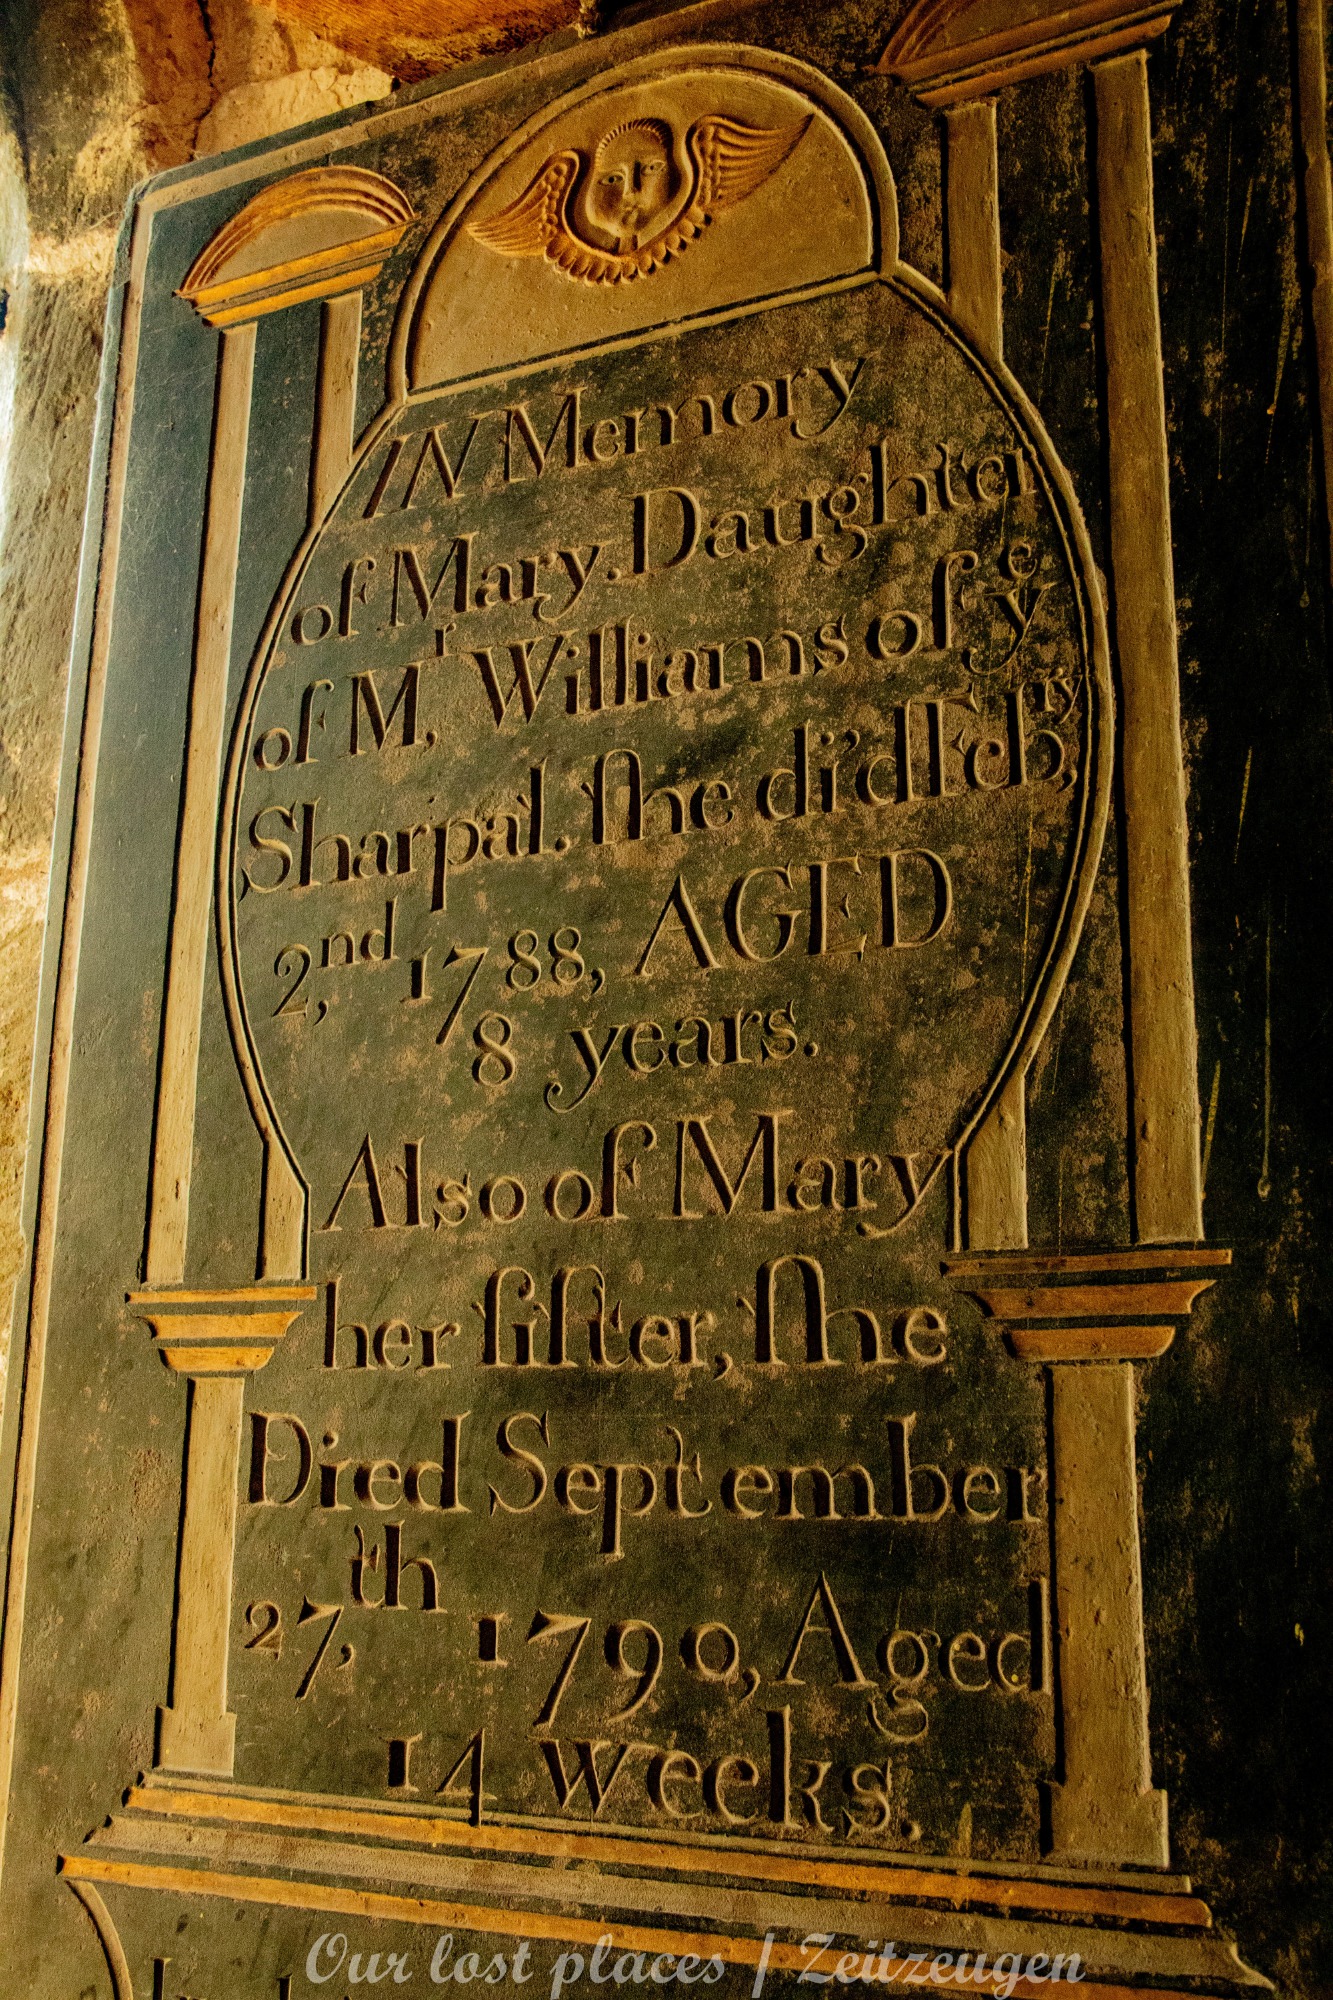 IN Memory
of Mary. Daughter
of Mʳ, Williams of yᵉ
Sharpal. ſhe di'd Febʳʸ,
2,ⁿᵈ 1788, AGED
8 years.
Also of Mary
her ſiſter, ſhe
Died September
27,ᵗʰ 1790, Aged
14 weeks.
Our lost places | Zeitzeugen